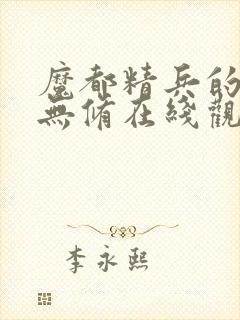 魔都精兵的
無脩在綫觀
李永熙